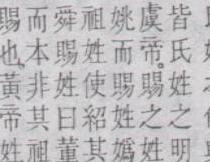 皆氏姓之明
虞帝。賜之姓
姚而賜姓媯
祖姓使紹其
舜賜姓曰董
而本非其祖
賜也,黃帝姓